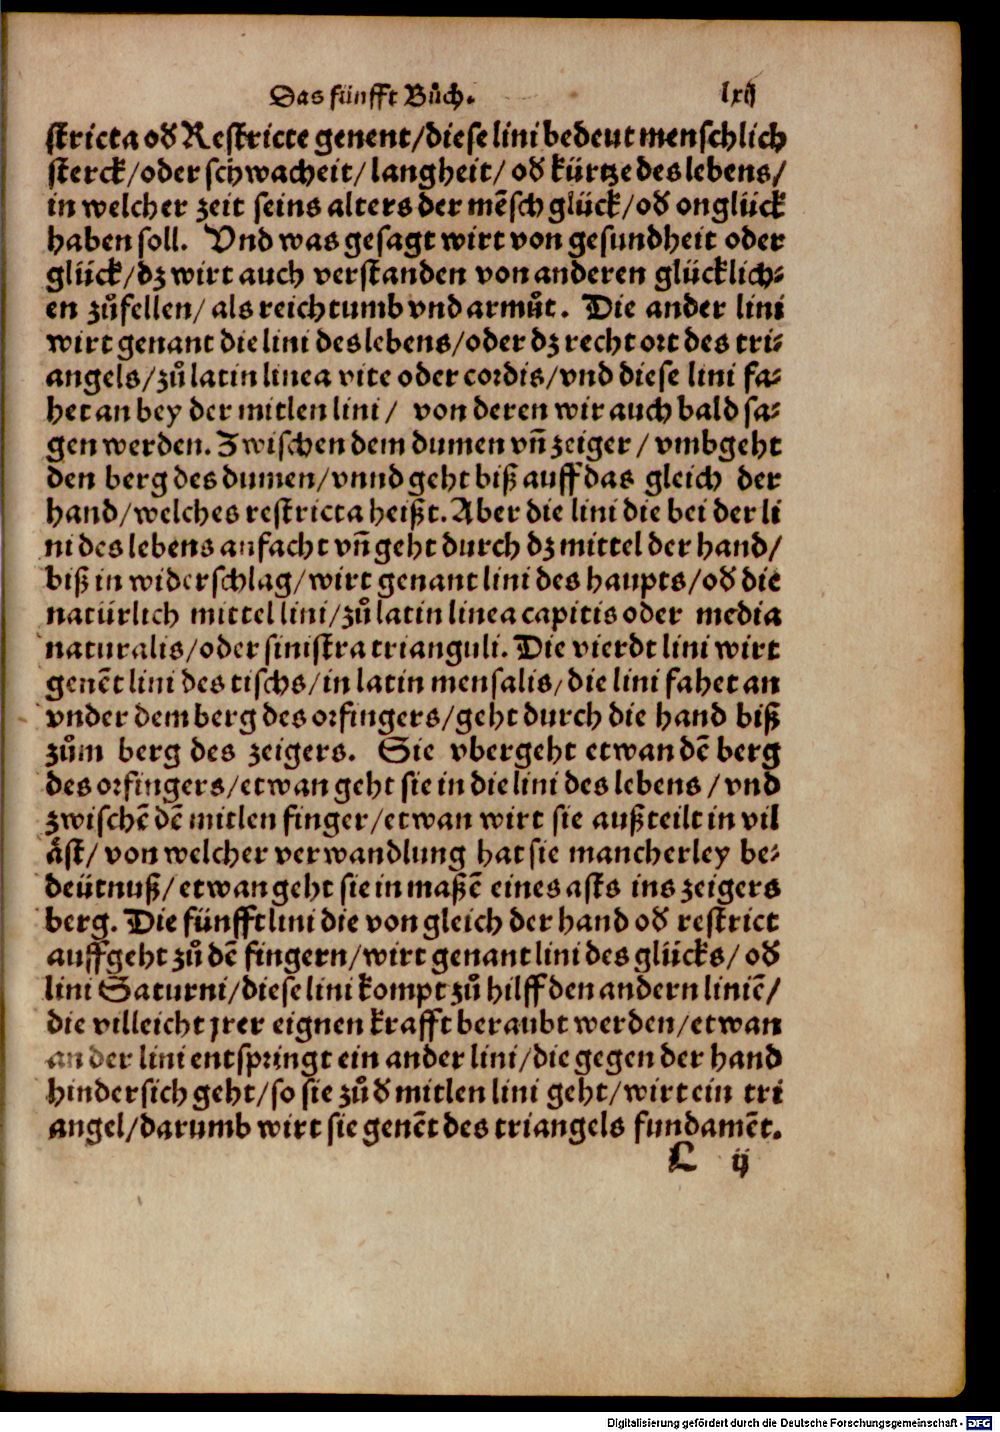 Das fünfft Bůch. lxij
stricta oď Restricte genent/diese lini bedeut menschlich
sterck/oder schwacheit/ langheit/ oď kürtze des lebens/
in welcher zeit seins alters der mēsch glück/oď onglück
haben soll. Vnd was gesagt wirt von gesundheit oder
glück/dz wirt auch verstanden von anderen glücklich⸗
en zůfellen/ als reichtumb vnd armůt. Die ander lini
wirt genant die lini des lebens/oder dz recht ort des tri⸗
angels/zů latin linea vite oder cordis/vnd diese lini fa⸗
het an bey der mitlen lini/ von deren wir auch bald sa⸗
gen werden. Zwischen dem dumen vñ zeiger/ vmbgeht
den berg des dumen/vnnd geht biß auff das gleich der
hand/welches restricta heißt. Aber die lini die bei der li
ni des lebens anfacht vñ geht durch dz mittel der hand/
biß in widerschlag/wirt genant lini des haupts/oď die
natürlich mittel lini/zů latin linea capitis oder media
naturalis/oder sinistra trianguli. Die vierdt lini wirt
genēt lini des tischs/in latin mensalis/die lini fahet an
vnder dem berg des orfingers/geht durch die hand biß
zům berg des zeigers. Sie vbergeht etwan dē berg
des orfingers/etwan geht sie in die lini des lebens/vnd
zwischē dē mitlen finger/etwan wirt sie außteilt in vil
äst/ von welcher verwandlung hat sie mancherley be⸗
deütnuß/etwan geht sie in maßē eines asts ins zeigers
berg. Die fünfft lini die von gleich der hand oď restrict
auffgeht zů dē fingern/wirt genant lini des glücks/ oď
lini Saturni/diese lini kompt zů hilff den andern liniē/
die villeicht jrer eignen krafft beraubt werden/etwan
an der lini entspringt ein ander lini/die gegen der hand
hindersich geht/so sie zů ď mitlen lini geht/wirt ein tri
angel/darumb wirt sie genēt des triangels fundamēt.
L ij
Digitalisierung gefördert durch die Deutsche Forschungsgemeinschaft - DFG